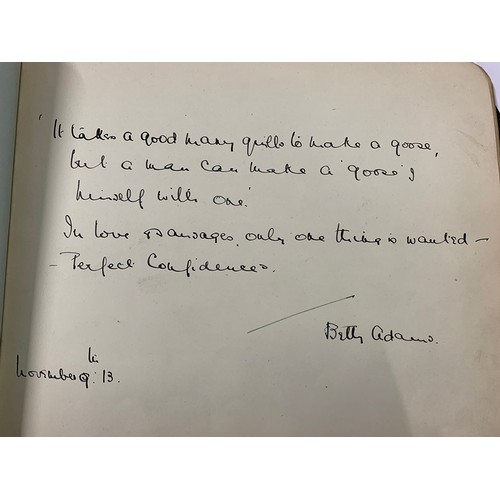 'It takes a good many quills to make a goose,
but a man can make a 'goose' of
himself with one.'
In love & sausages, only one thing is wanted —
— Perfect Confidence.
Betty Adams.
November 9th: 13.